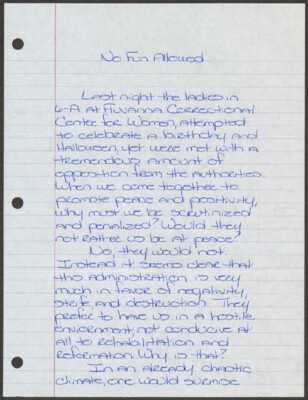 No Fun Allowed
Last night the ladies in
6-A at Fluvanna Correctional
Center for Women, attempted
to celebrate a birthday and
Halloween, yet were met with a
tremendous amount of
opposition from the authorities.
When we come together to
promote peace and positivity,
why must we be scrutinized
and penalized? Would they
not rather us be at peace?
No, they would not.
Instead it seems clear that
this administration is very
much in favor of negativity,
strife, and destruction. They
prefer to have us in a hostile
environment, not conducive at
all to rehabilitation and
reformation. Why is that?
In an already chaotic
climate, one would surmise